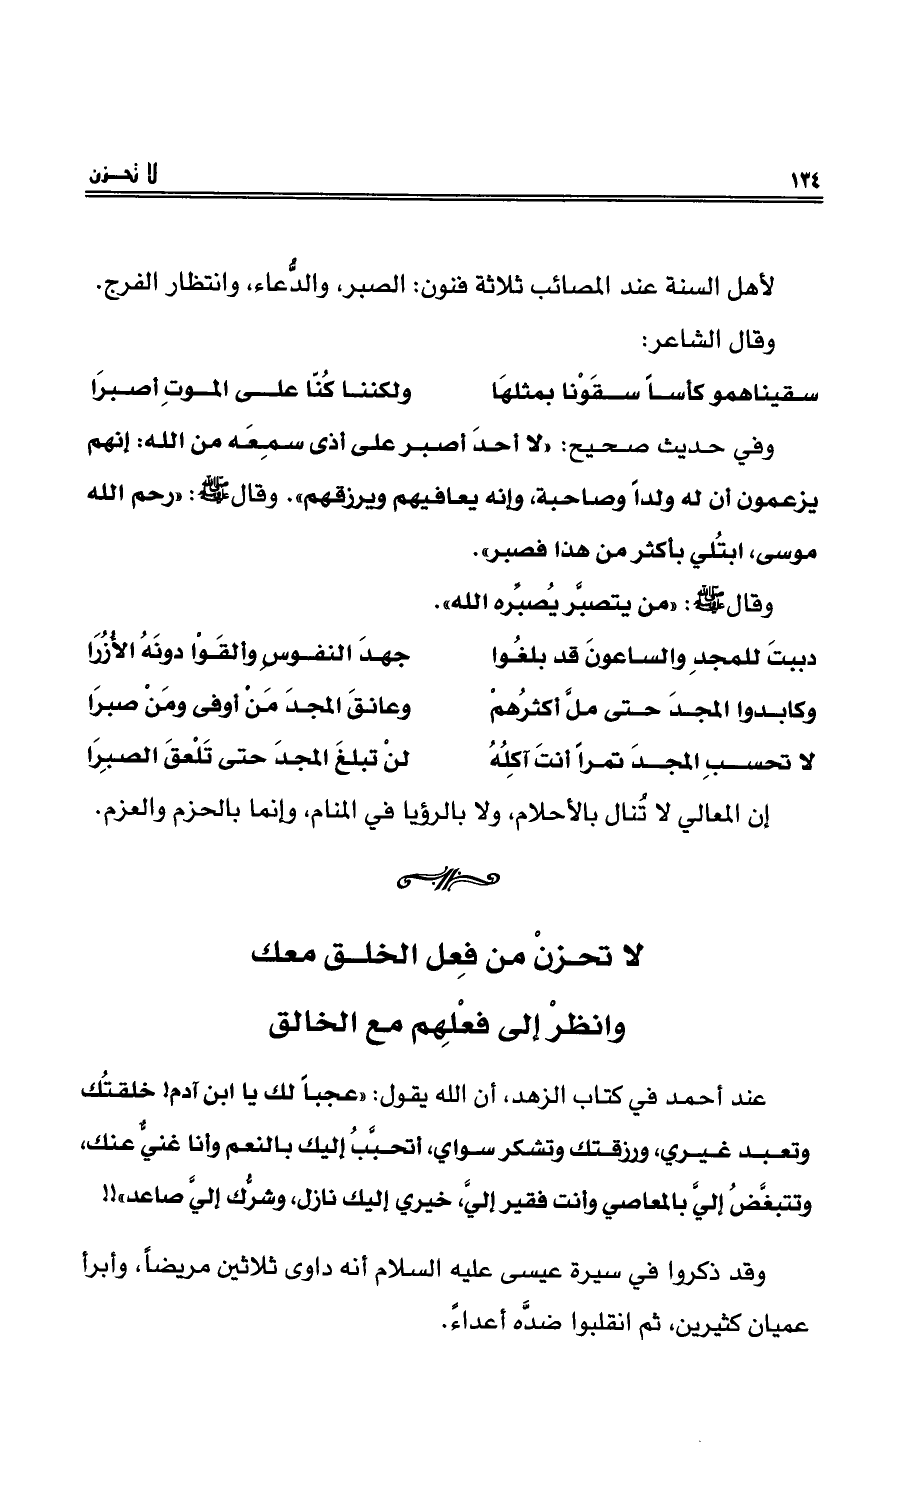 ١٣٤ لا تحـزن
لأهل السنة عند المصائب ثلاثة فنون: الصبر، والدُّعاء، وانتظار الفرج.
وقال الشاعر:
سقيناهمو كأساً سقَوْنا بمثلهَا ولكننا كُنَّا على الموتِ أصبرَا
وفي حديث صحيح: «لا أحدَ أصبر على أذى سمعَه من الله: إنهم
يزعمون أن له ولداً وصاحبة، وإنه يعافيهم ويرزقهم». وقال ﷺ: «رحم الله
موسى، ابتُلي بأكثر من هذا فصبر».
وقال ﷺ: «من يتصبَّر يُصبِّره الله».
دببتَ للمجدِ والساعونَ قد بلغُوا جهدَ النفوسِ وألقَوْا دونَهُ الأُزُرَا
وكابدوا المجدَ حتى ملَّ أكثرُهمْ وعانقَ المجدَ مَنْ أوفى ومَنْ صبرَا
لا تحسبِ المجدَ تمراً أنتَ آكلُهُ لنْ تبلغَ المجدَ حتى تَلْعقَ الصبِرَا
إن المعالي لا تُنال بالأحلام، ولا بالرؤيا في المنام، وإنما بالحزم والعزم.
لا تحزنْ من فِعل الخلق معك
وانظرْ إلى فعْلِهم مع الخالق
عند أحمد في كتاب الزهد، أن الله يقول: «عجباً لك يا ابن آدم! خلقتُك
وتعبد غيري، ورزقتك وتشكر سواي، أتحبَّبُ إليك بالنعم وأنا غنيٌّ عنك،
وتتبغَّضُ إليَّ بالمعاصي وأنت فقير إليَّ، خيري إليك نازل، وشرُّك إليَّ صاعد»!!
وقد ذكروا في سيرة عيسى عليه السلام أنه داوى ثلاثين مريضاً، وأبرأ
عميان كثيرين، ثم انقلبوا ضدَّه أعداءً.